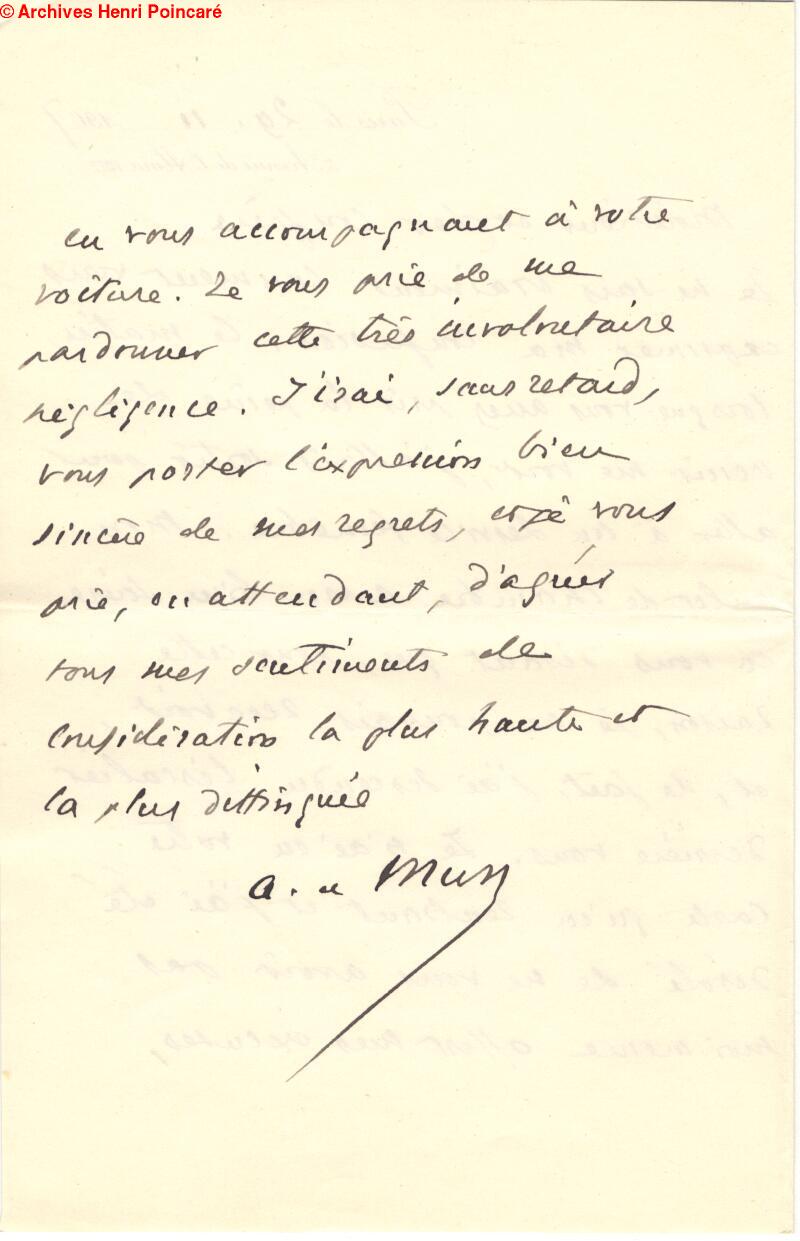 © Archives Henri Poincaré
en vous accompagnant à votre
voiture. Je vous prie de me
pardonner cette très involontaire
négligence. J'irai, sans retard,
vous porter l'expression bien
sincère de mes regrets, et je vous
prie, en attendant, d'agréer
tous mes sentiments de
considération la plus haute et
la plus distinguée
A. de Mun